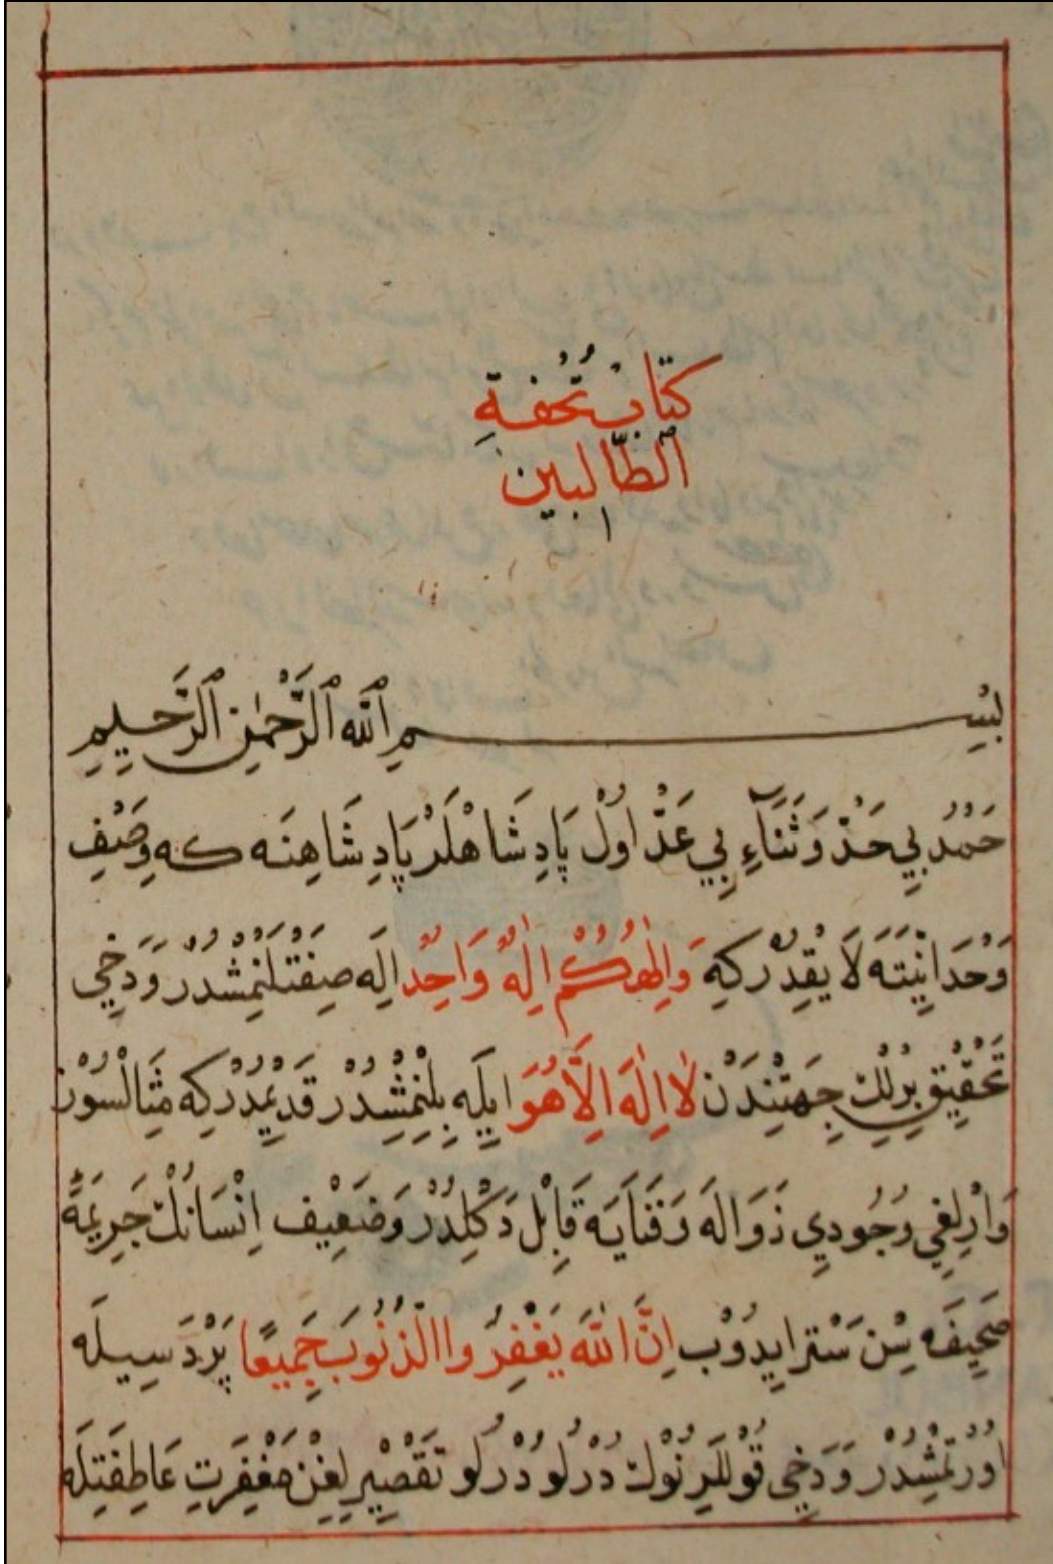 كتاب تحفة
الطّالبين
بِسْمِ اللّٰهِ الرَّحْمٰنِ الرَّحِيمِ
حَمْدُ بِي حَدْ وَثَنَآءِ بِي عَدّْ اوُلْ پَادِشَاهْلَرْ پَادِشَاهِنَه كه وَصْفِ
وَحْدَانِيَّتَه لَا يُقِدُرْ كِهِ وَاِلٰهُكُمْ اِلٰهٌ وَاحِدٌ اِلَه صِفَتْلَنْمِشْدُرْ وَدَخِي
تَحْقِيقِ بِرْلِكِ جِهَتِنْدَنْ لَا اِلٰهَ اِلَّا هُوَ ايِلَهِ بِلِنْمِشْدُرْ قَدِيمْدُرْ كِه مِثَالْسُوزْ
وَارْلِغِي وُجُودِي زَوَالَه وَفَنَايَه قَابِلْ دَكُلْدُرْ وَضَعِيفِ اِنْسَانُكْ جَرِيمَةً
صَحِيفَه سِنْ سَتْر ايِدُوبْ اِنَّ اللّٰهَ يَغْفِرُ واالذُّنُوبَ جَمِيعًا پَرْدَسِيلَه
اوُرْتْمِشْدُرْ وَدَخِي قُوللَرِنُوكْ دُرْلُو دُرْلُو تَقْصِيْرِلِغِنْ مَغْفِرَتِ عَاطِفَتِلَه